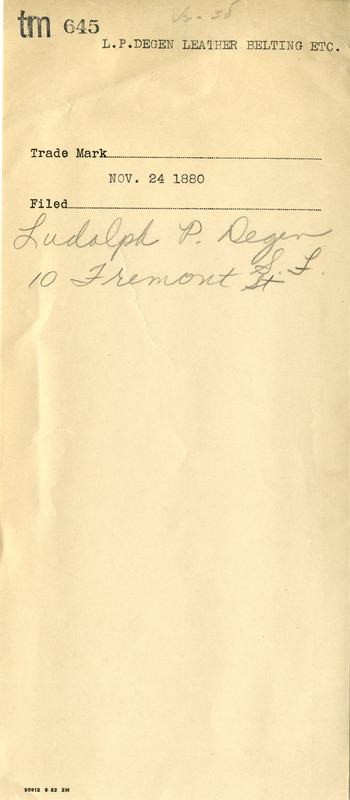 tm 645
L.P.DEGEN LEATHER BELTING ETC.
Trade Mark
NOV. 24 1880
Filed
Ludolph P. Degen
10 Fremont St S. F.
95612 6-32 2M